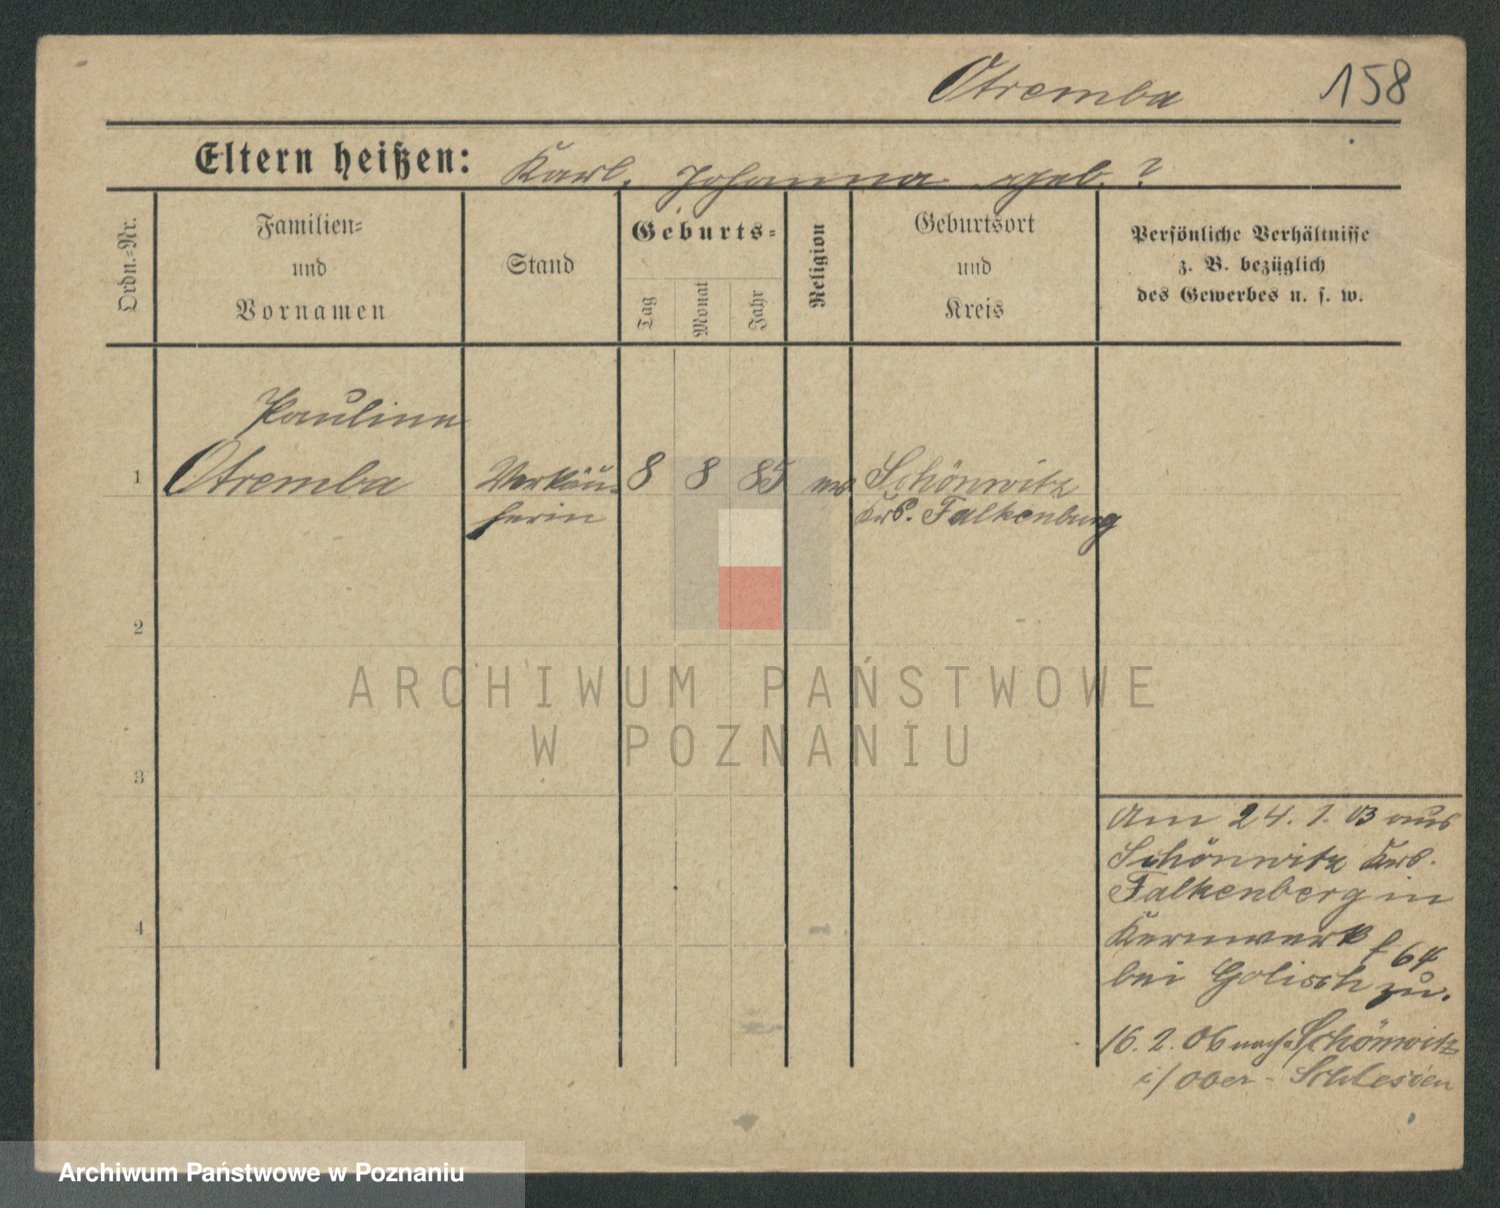 Otremba 158
Eltern heißen: Karl, Johanna geb. ?
Ordn.-Nr.
Familien-
und
Vornamen
Stand
Geburts-
Tag
Monat
Jahr
Religion
Geburtsort
und
Kreis
Persönliche Verhältnisse
z. B. bezüglich
des Gewerbes u. s. w.
Pauline
1 Otremba Verkäu- 8 8 85 Schönwitz
ferin Krs. Falkenburg
2
3
4
ARCHIWUM PAŃSTWOWE
W POZNANIU
Am 24. 1. 03 aus
Schönwitz Krs.
Falkenberg in
Kernwerk f 64
bei Golisch zu.
16. 2. 06 nach Schönwitz
i/Ober-Schlesien
Archiwum Państwowe w Poznaniu